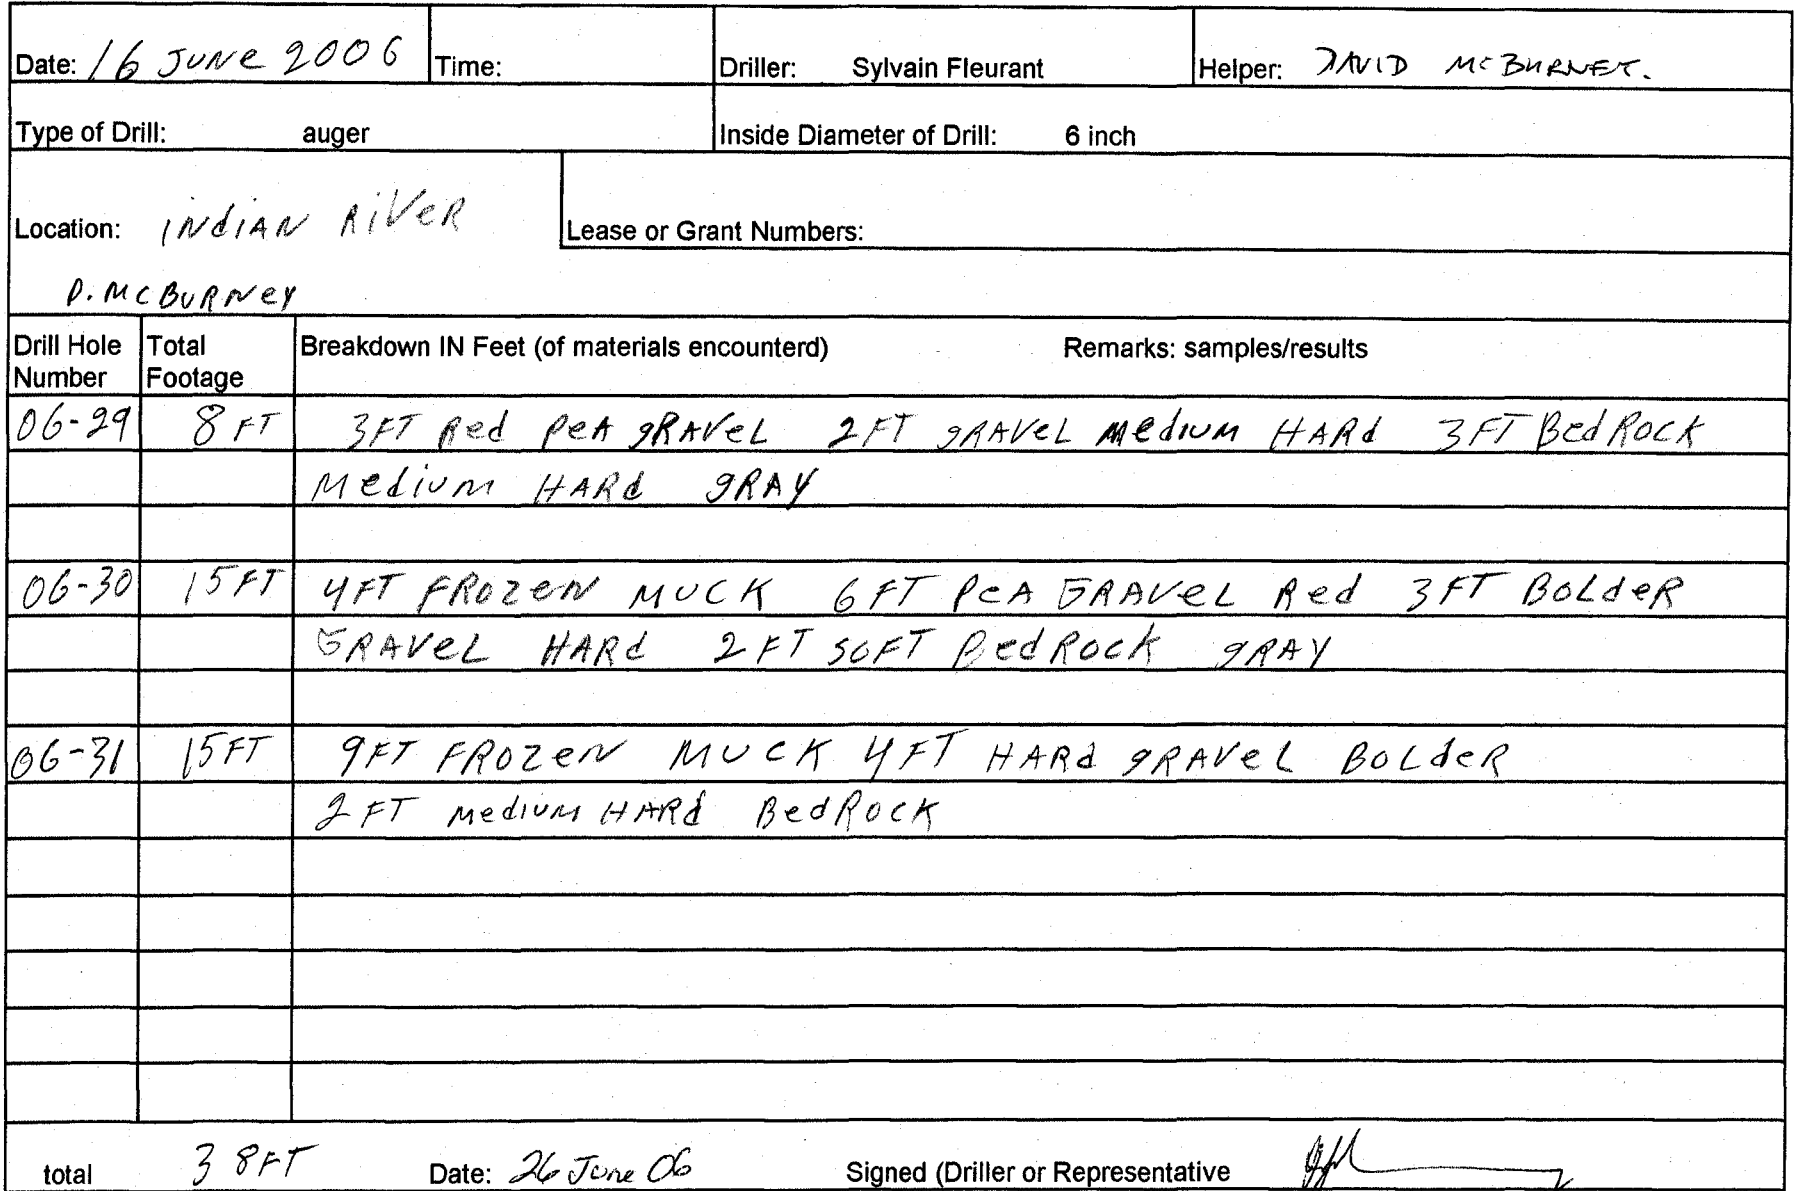 Date: 16 JUNE 2006 Time: Driller: Sylvain Fleurant Helper: DAVID McBURNEY.
Type of Drill: auger Inside Diameter of Drill: 6 inch
Location: INDIAN RIVER Lease or Grant Numbers:
D. McBURNEY
Drill Hole Number Total Footage Breakdown IN Feet (of materials encounterd) Remarks: samples/results
06-29 8 FT 3FT Red PeA gRAVeL 2FT gRAVeL MedIUM HARd 3FT BedRock
Medium HARd gRAY
06-30 15FT 4FT FROzeN MUCK 6FT PeA GRAVeL Red 3FT BOLdeR
GRAVeL HARd 2FT SOFT BedROCK gRAY
06-31 15FT 9FT FROzeN MUCK 4FT HARd gRAVeL BOLdeR
2FT MedIUM HARd BedROCK
total 38FT Date: 26 June 06 Signed (Driller or Representative